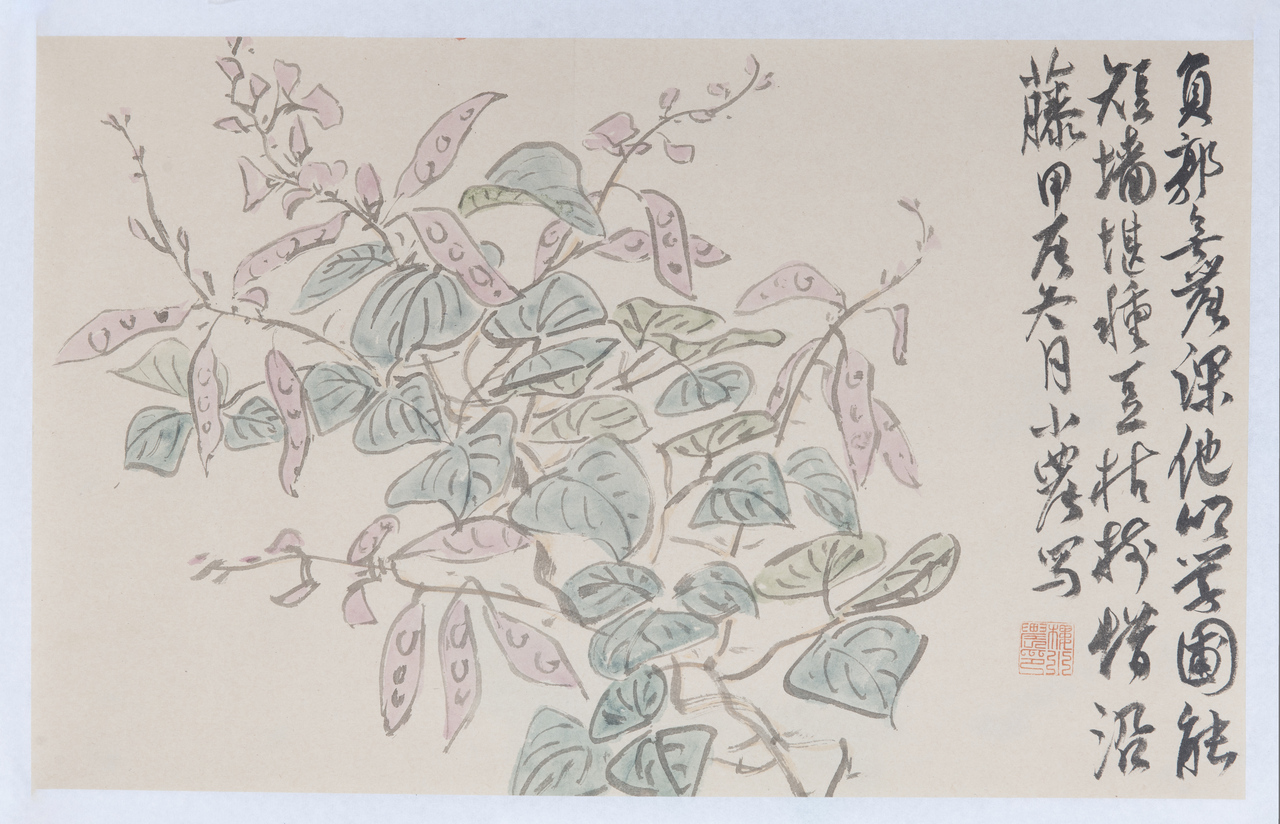 負郭無農課他學圃能
短墻堪種豆枯樹惜沿
藤甲辰六月小農寫